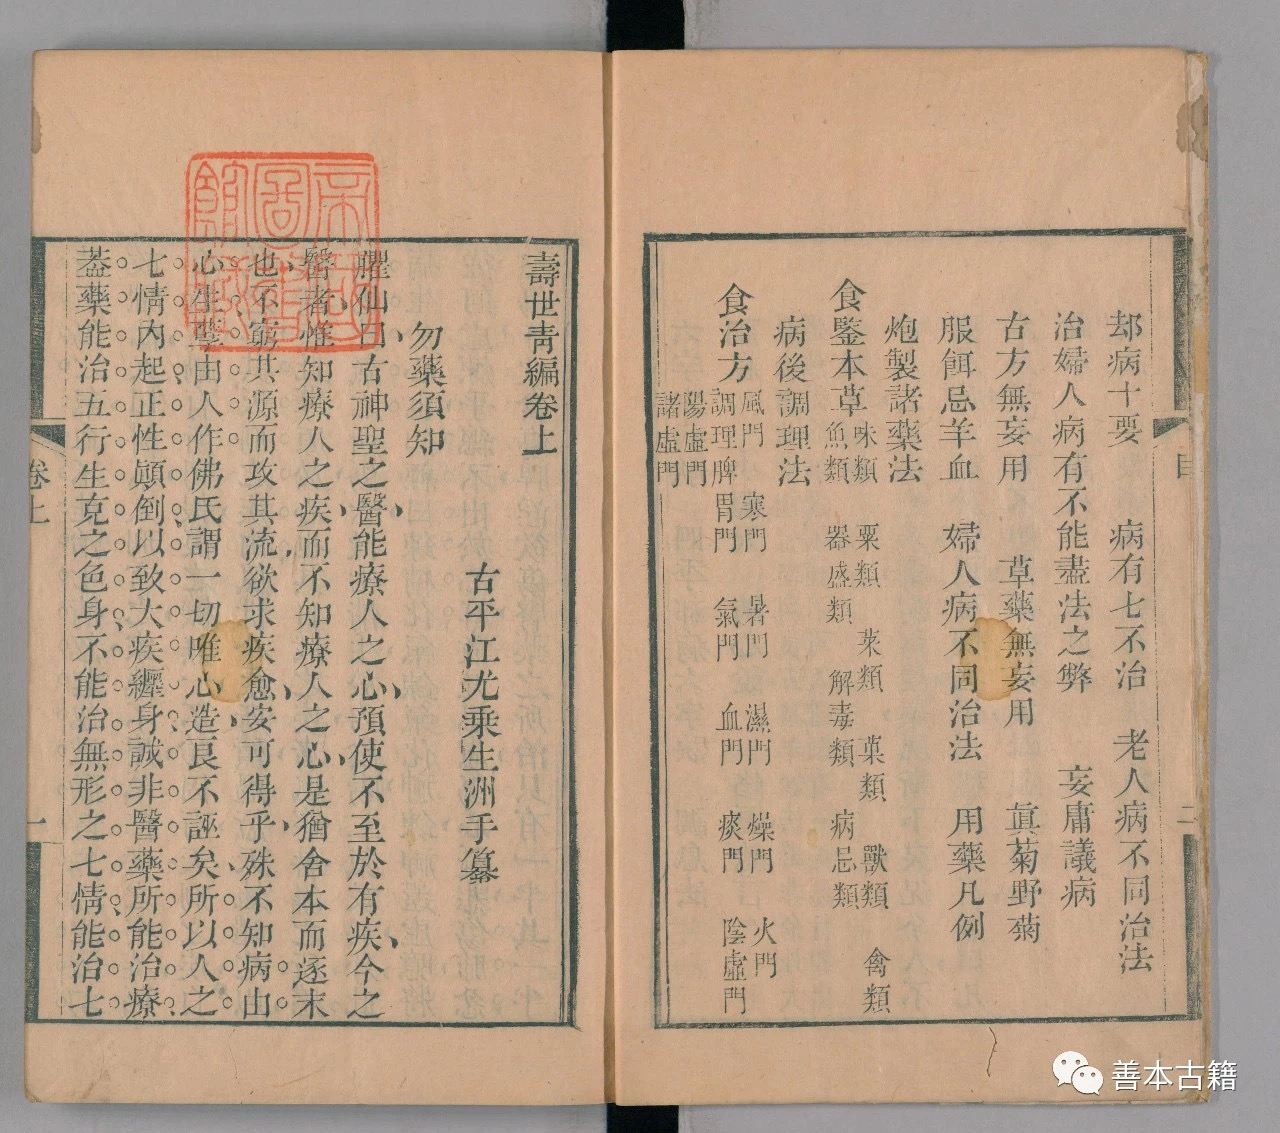 却病十要 病有七不治 老人病不同治法
治婦人病有不能盡法之弊 妄庸議病
古方無妄用 草藥無妄用 眞菊野菊
服餌忌羊血 婦人病不同治法 用藥凡例
炮製諸藥法
食鑒本草
味類 粟類 菜類 菓類 獸類 禽類
魚類 器盛類 解毒類 病忌類
病後調理法
食治方
風門 寒門 暑門 濕門 燥門 火門
調理脾胃門 氣門 血門 痰門 陰虛門
陽虛門
諸虛門
目
二
壽世青編卷上
古平江尤乘生洲手纂
勿藥須知
臞仙曰古神聖之醫能療人之心預使不至於有疾今之
醫者惟知療人之疾而不知療人之心是猶舍本而逐末
也不窮其源而攻其流欲求疾愈安可得乎殊不知病由
心生孽由人作佛氏謂一切唯心造良不誣矣所以人之
七情內起正性顚倒以致大疾纏身誠非醫藥所能治療
葢藥能治五行生克之色身不能治無形之七情能治七
卷上
一
帝國圖書館藏
善本古籍